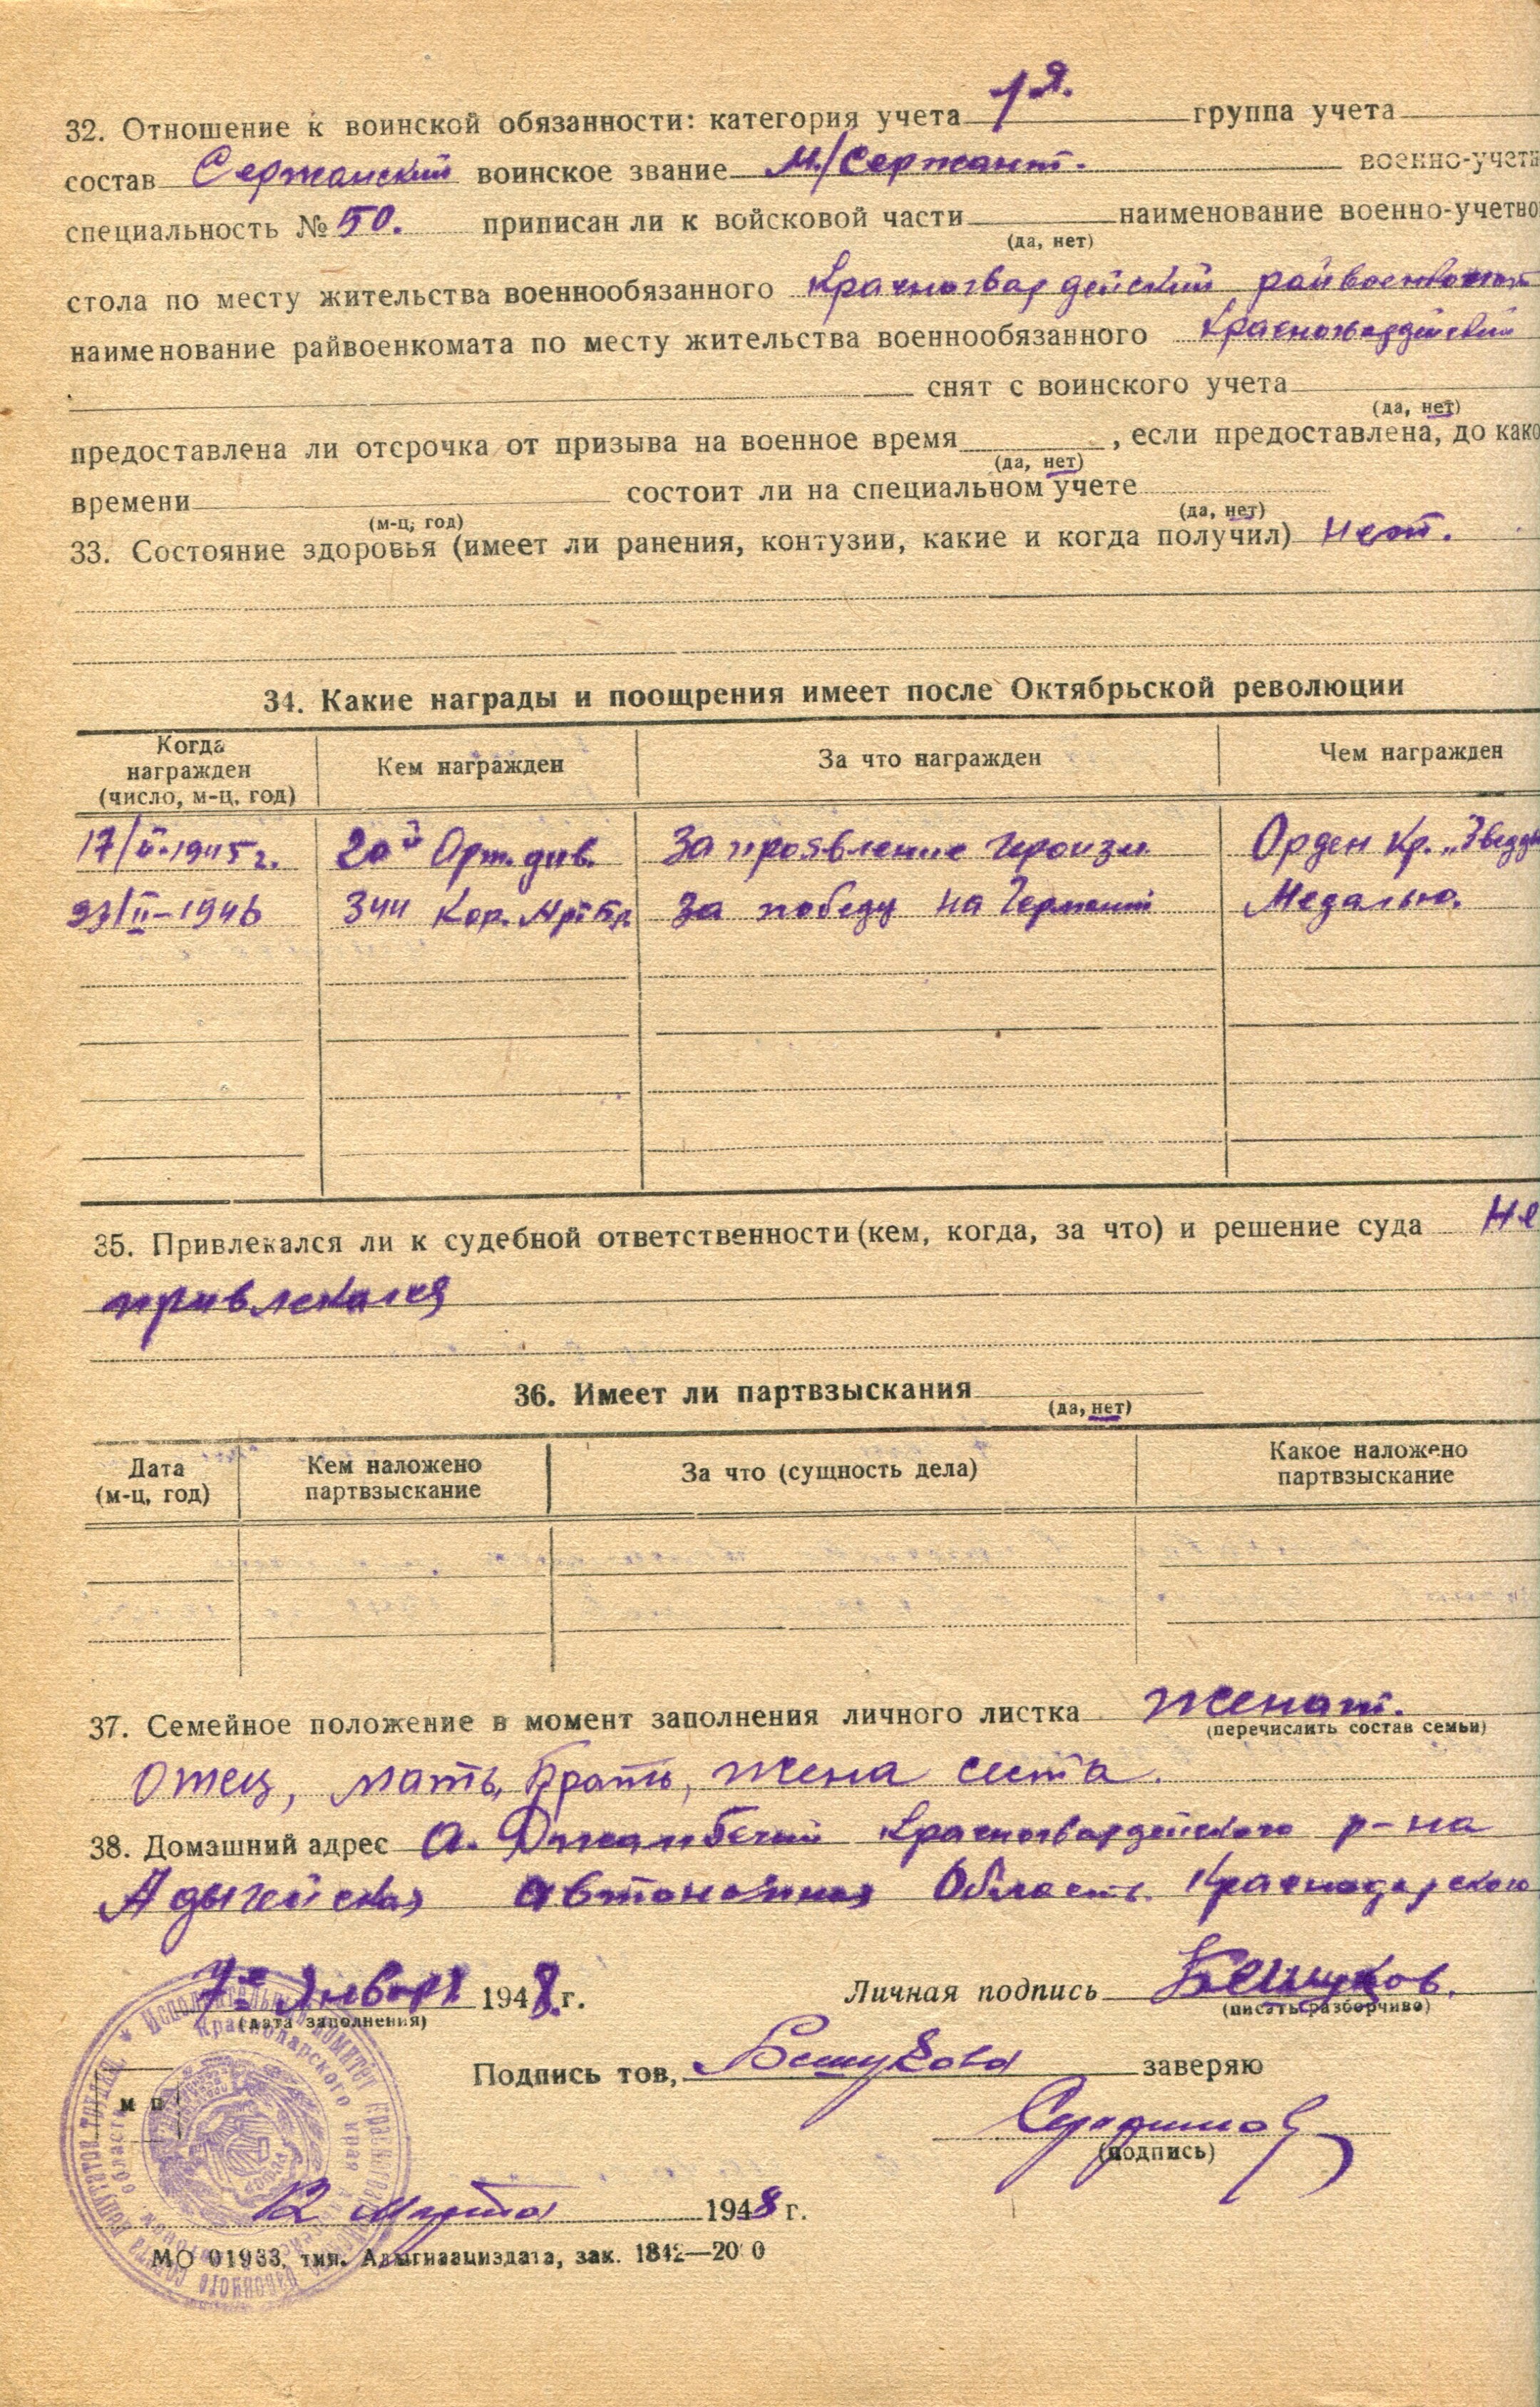 32. Отношение к воинской обязанности: категория учета 1я. группа учета
состав Сержанский воинское звание М./Сержант. военно-учетн
специальность № 50. приписан ли к войсковой части наименование военно-учетно
(да, нет)
стола по месту жительства военнообязанного Красногвардейский райвоенкомат
наименование райвоенкомата по месту жительства военнообязанного Красногвардейский
снят с воинского учета
(да, нет)
предоставлена ли отсрочка от призыва на военное время , если предоставлена, до како
(да, нет)
времени состоит ли на специальном учете
(м-ц, год) (да, нет)
33. Состояние здоровья (имеет ли ранения, контузии, какие и когда получил) Нет.
34. Какие награды и поощрения имеет после Октябрьской революции
Когда награжден (число, м-ц, год) Кем награжден За что награжден Чем награжден
17/V-1945 г. 20й Арт. див. За проявление героизм Орден Кр. „Звезды
23/II-1946 344 За победу на Германи Медалью.
35. Привлекался ли к судебной ответственности (кем, когда, за что) и решение суда Не
привлекался
36. Имеет ли партвзыскания
(да, нет)
Дата (м-ц, год) Кем наложено партвзыскание За что (сущность дела) Какое наложено партвзыскание
37. Семейное положение в момент заполнения личного листка Женат.
(перечислить состав семьи)
Отец, мать, Брать, жена
38. Домашний адрес а. Джамбечий Красногвардейского р-на
Адыгейская Автономная Область Краснодарского
7е Января 1948 г. Личная подпись Бешуков.
(дата заполнения) (писать разборчиво)
Подпись тов. Бешукова заверяю
м п
(подпись)
12 марта 1948 г.
МО 01933, тип. Адыгнациздата, зак. 1842—20 0
Исполнительный комитет
Краснодарского края